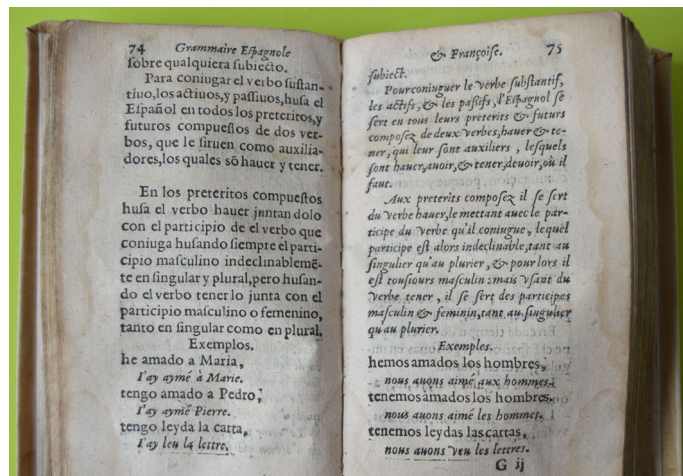 74 Grammaire Eſpagnole
ſobre qualquiera ſubiecto.
Para coniugar el verbo ſuſtan-
tiuo, los actiuos, y paſſiuos, huſa el
Eſpañol en todos los preteritos, y
futuros compueſtos de dos ver-
bos, que le ſiruen como auxilia-
dores, los quales sõ hauer y tener.
En los preteritos compueſtos
huſa el verbo hauer juntandolo
con el participio de el verbo que
coniuga huſando ſiempre el parti-
cipio maſculino indeclinablemē-
te en ſingular y plural, pero huſan-
do el verbo tener lo junta con el
participio maſculino o femenino,
tanto en ſingular como en plural,
Exemplos.
he amado a Maria,
I'ay aymé à Marie.
tengo amado a Pedro,
I'ay aymé Pierre.
tengo leyda la carta,
I'ay leu la lettre.
& Françoiſe. 75
ſubiect.
Pour coniuguer le verbe ſubſtantif,
les actifs, & les paſſifs, l'Eſpagnol ſe
ſert en tous leurs preterits & futurs
compoſez de deux verbes, hauer & te-
ner, qui leur ſont auxiliers, leſquels
ſont hauer, auoir, & tener, deuoir, où il
faut.
Aux preterits compoſez il ſe ſert
du verbe hauer, le mettant auec le par-
ticipe du verbe qu'il coniugue, lequel
participe eſt alors indeclinable, tant au
ſingulier qu'au plurier, & pour lors il
eſt touſiours maſculin: mais vſant du
verbe tener, il ſe ſert des participes
maſculin & feminin, tant au ſingulier
qu'au plurier.
Exemples.
hemos amados los hombres,
nous auons aimé aux hommes.
tenemos amados los hombres,
nous auons aimé les hommes.
tenemos leydas las cartas,
nous auons veu les lettres.
G ij